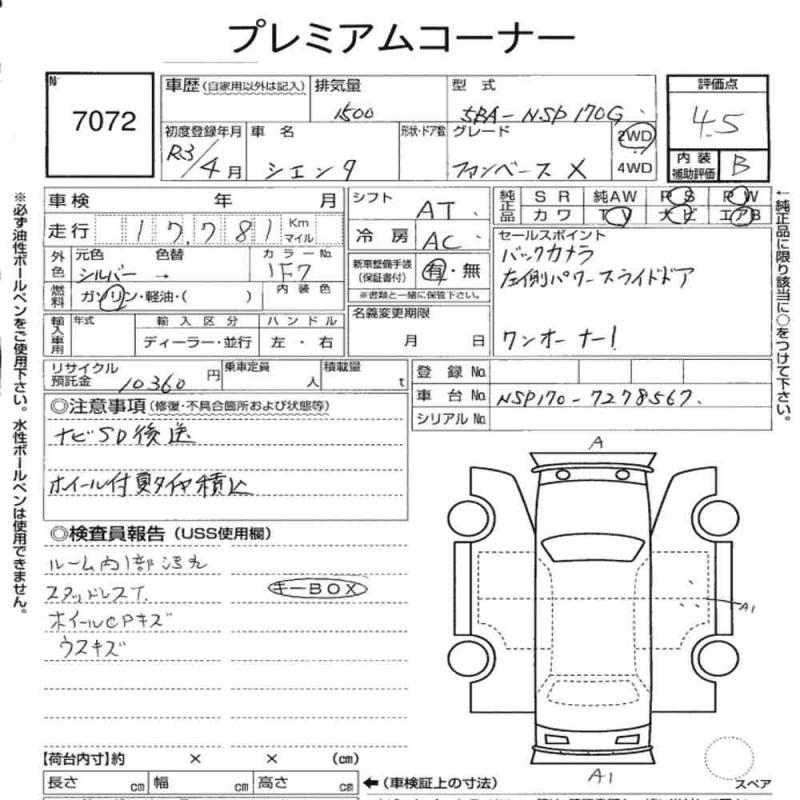 プレミアムコーナー
No 7072
車歴(自家用以外は記入) 排気量 1500 型式 5BA-NSP170G
評価点 4.5
初度登録年月 R3/4月 車名 シエンタ 形状・ドア数 グレード ファンベース X 2WD 4WD
内装補助評価 B
車検 年 月
走行 17,781 Km マイル
シフト AT
冷房 AC
純正品 SR 純AW PS PW
カワ TV ナビ エアB
外色 元色 シルバー 色替 → カラーNo. 1F7
燃料 ガソリン・軽油・( ) 内装色
新車整備手帳(保証書付) 有・無
※書類と一緒に保管下さい。
名義変更期限 月 日
セールスポイント
バックカメラ
左側パワースライドドア
ワンオーナー!
輸入車用 年式 輸入区分 ハンドル
ディーラー・並行 左・右
リサイクル預託金 10360円 乗車定員 人 積載量 t
登録No.
車台No. NSP170-7278567.
シリアルNo.
◎注意事項(修復・不具合箇所および状態等)
ナビSD後送
ホイール付夏タイヤ積込
◎検査員報告(USS使用欄)
ルーム内1部汚れ
スタッドレスT.
キーBOX
ホイールCPキズ
ウスキズ
A
A1
A1
スペア
【荷台内寸】約 × × (cm)
長さ cm 幅 cm 高さ cm ←(車検証上の寸法)
※必ず油性ボールペンをご使用下さい。水性ボールペンは使用できません。
←純正品に限り該当に○をつけて下さい。